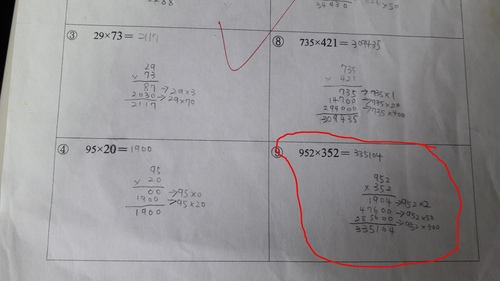 ③ 29×73= 2117
29
× 73
87 →29×3
2030 →29×70
2117
④ 95×20= 1900
95
× 20
00 →95×0
1900 →95×20
1900
⑧ 735×421= 309435
735
× 421
735 →735×1
14700 →735×20
294000 →735×400
309435
⑨ 952×352= 335104
952
× 352
1904 →952×2
47600 →952×50
285600 →952×300
335104